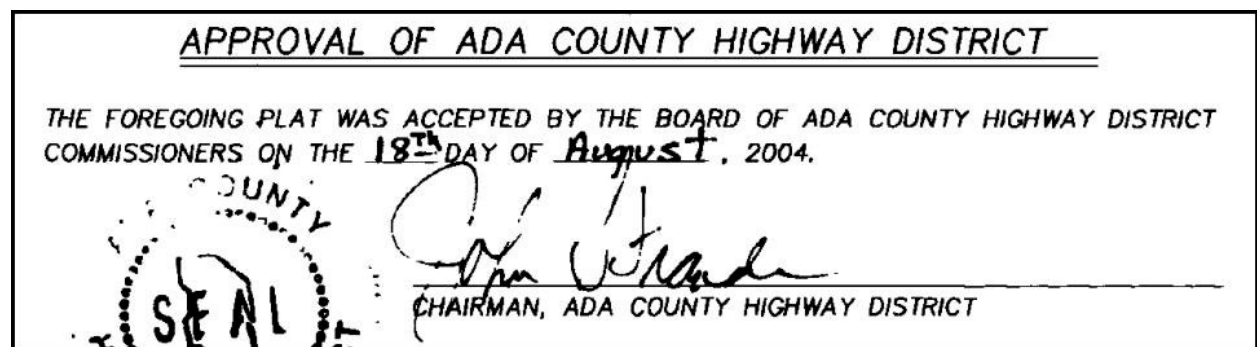 APPROVAL OF ADA COUNTY HIGHWAY DISTRICT
THE FOREGOING PLAT WAS ACCEPTED BY THE BOARD OF ADA COUNTY HIGHWAY DISTRICT
COMMISSIONERS ON THE 18TH DAY OF August, 2004.
COUNTY
SEAL
CHAIRMAN, ADA COUNTY HIGHWAY DISTRICT